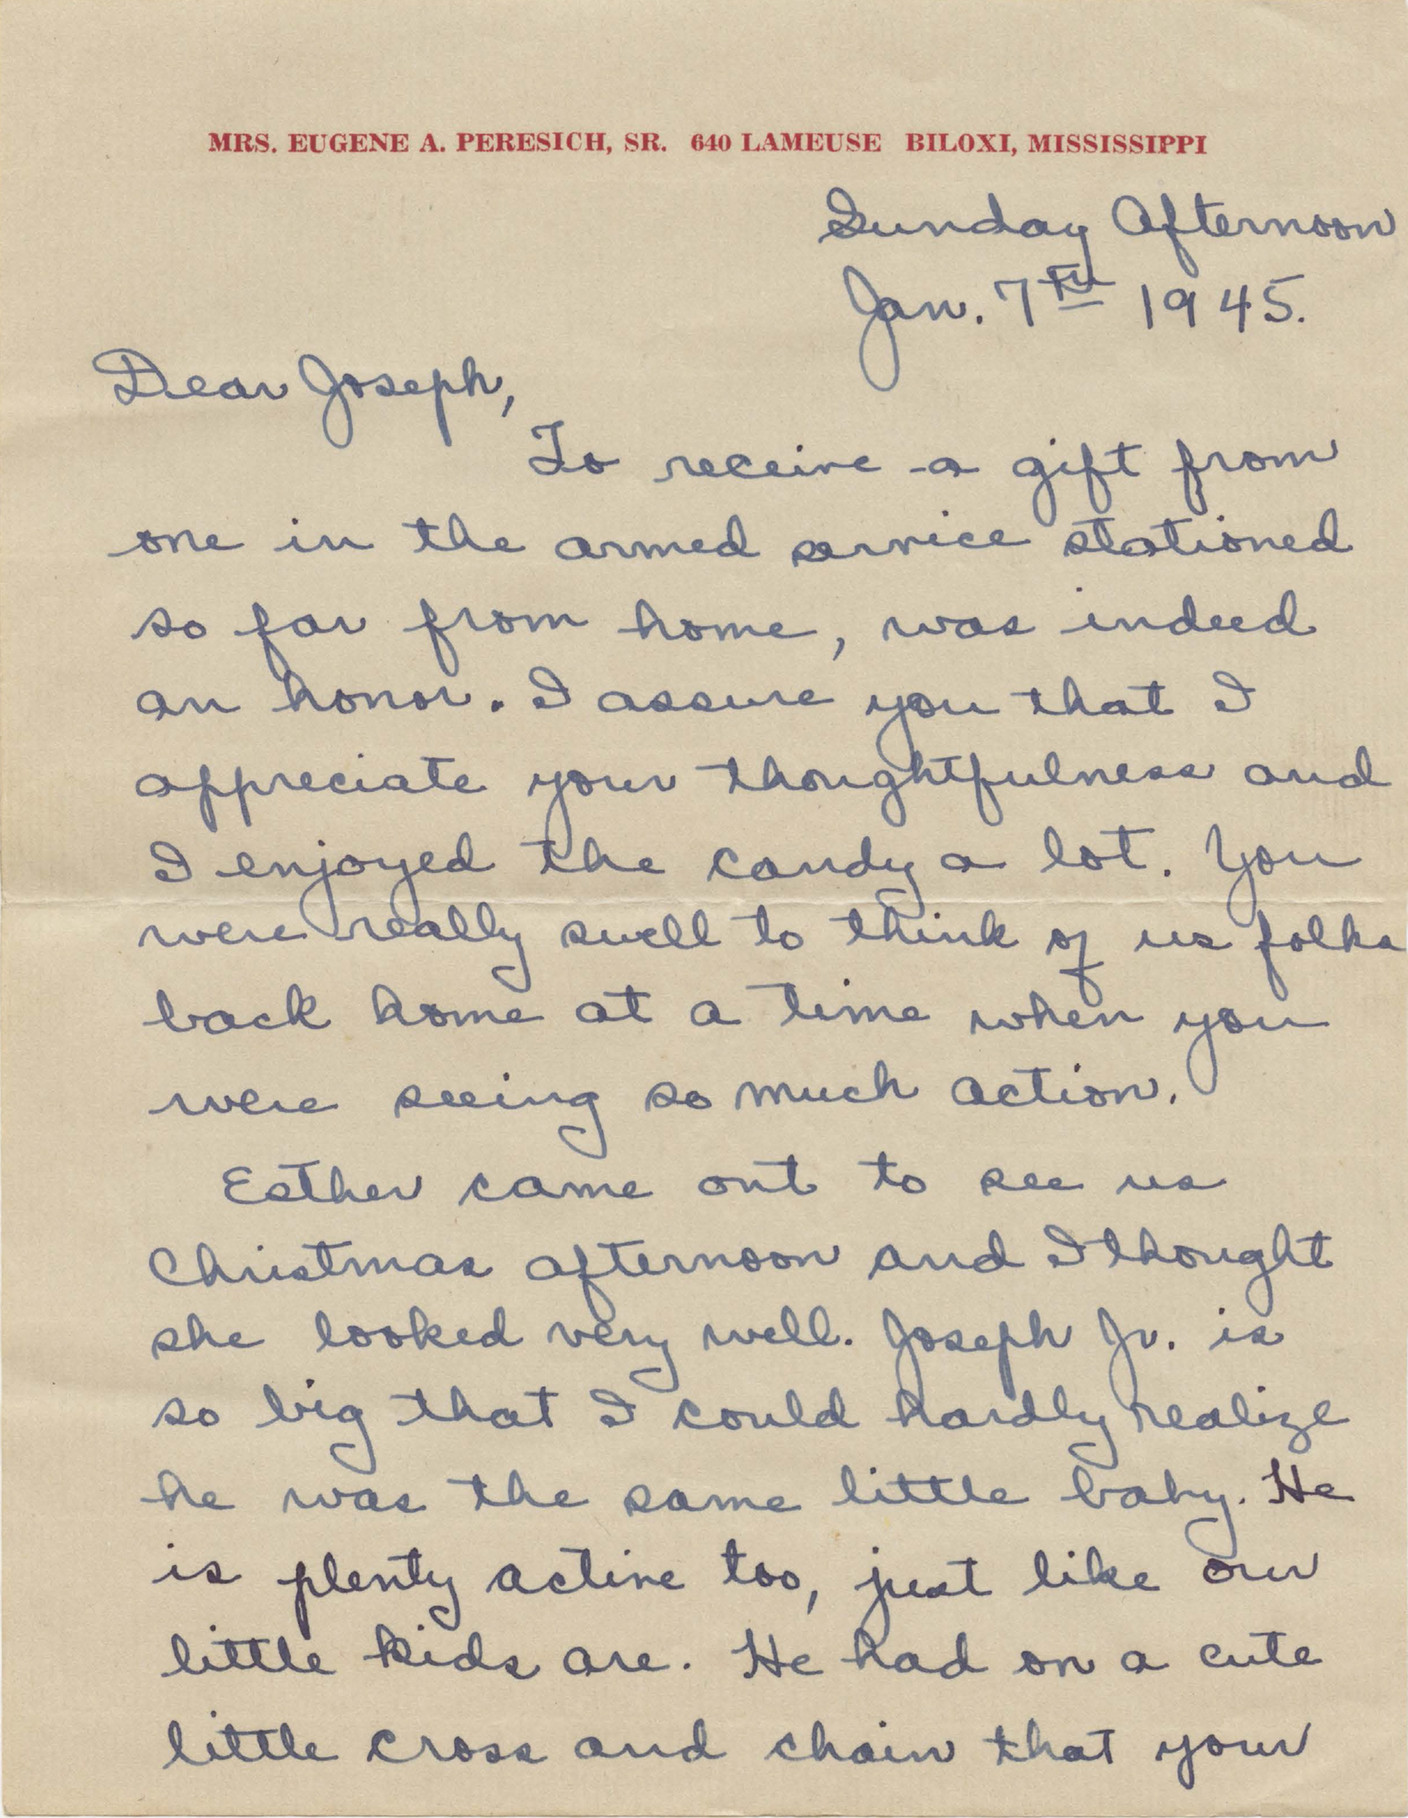 MRS. EUGENE A. PERESICH, SR. 640 LAMEUSE BILOXI, MISSISSIPPI
Sunday Afternoon
Jan. 7th 1945.
Dear Joseph,
To receive a gift from
one in the armed service stationed
so far from home, was indeed
an honor. I assure you that I
appreciate your thoughtfulness and
I enjoyed the candy a lot. You
were really swell to think of us folks
back home at a time when you
were seeing so much action.
Esther came out to see us
Christmas afternoon and I thought
she looked very well. Joseph Jr. is
so big that I could hardly realize
he was the same little baby. He
is plenty active too, just like our
little kids are. He had on a cute
little cross and chain that your